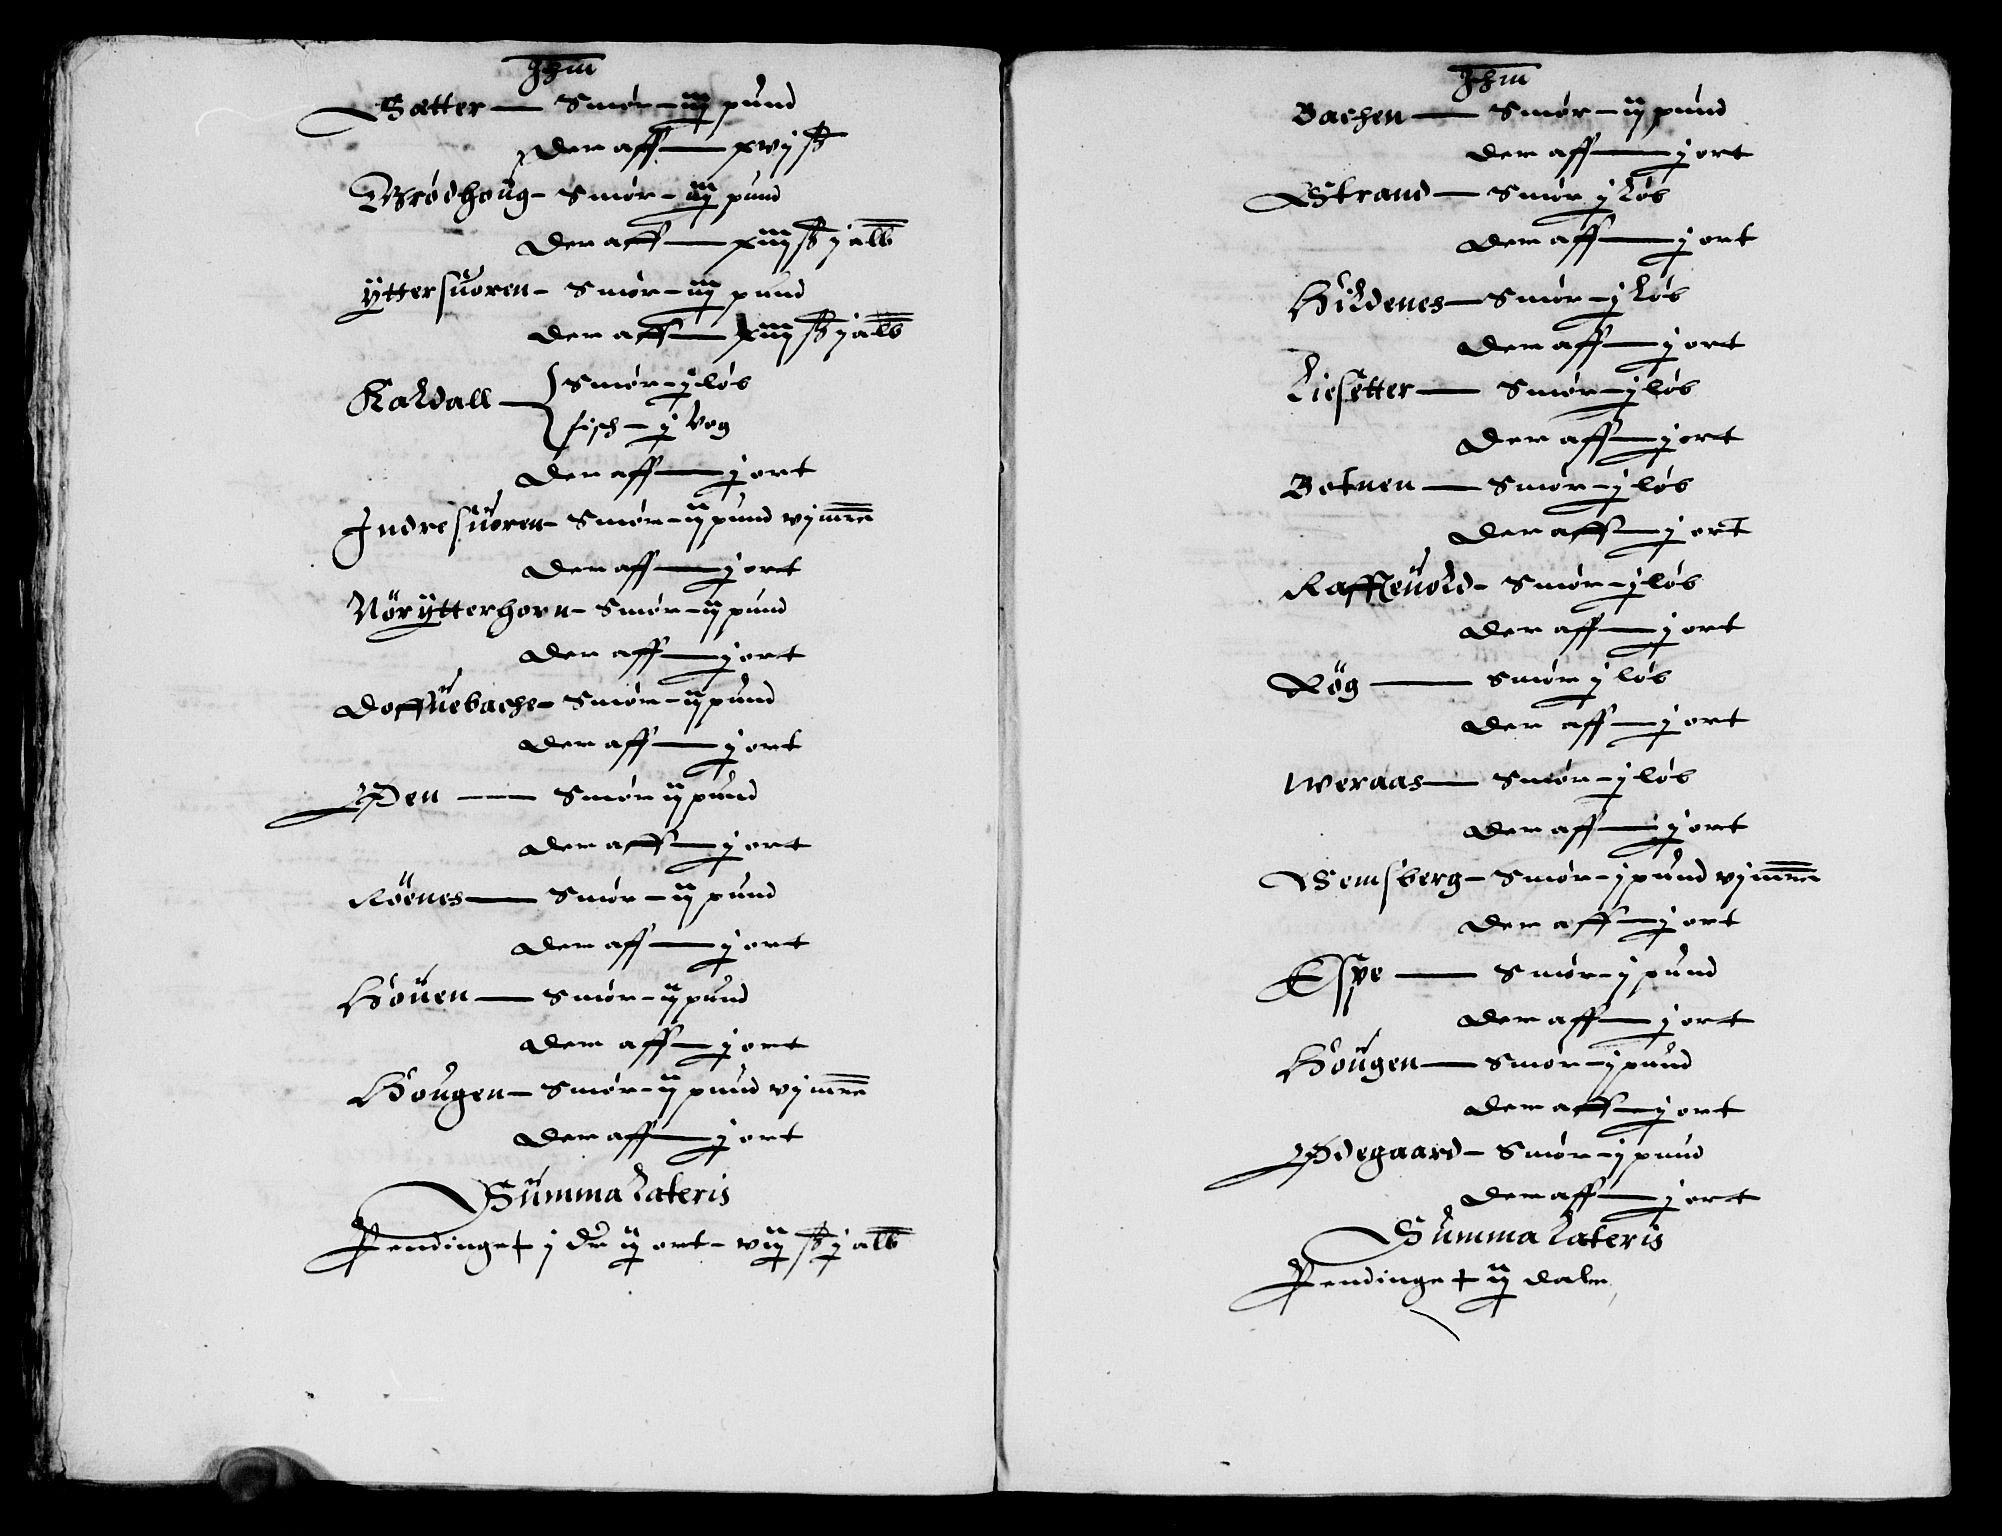 Jhm
Sætter — Smør – iiij pund
Der aff — xvj ß
Brødhoug – Smør – iiij pund
Der aff — xiiij ß j alb
Ÿttersuoren – Smør – iiij pund
Der aff — xiiij ß j alb
Kaldall — Smør – j løb
fisch – j Vog
Der aff — j ort
Indresuoren – Smør – ij pund vj mrc
Der aff — j ort
Nörÿtterhorn – Smør – ij pund
Der aff — j ort
Doffuebache – Smør – ij pund
Der aff — j ort
Øen — Smør ij pund
Der aff — j ort
Röenes — Smør – ij pund
Der aff — j ort
Houen — Smør – ij pund
Der aff — j ort
Hougen – Smør – ij pund vj mrc
Der aff — j ort
Summa Lateris
Pendinge + j dr ij ort – viij ß j alb
Jhm
Bachen — Smør – ij pund
Der aff — j ort
Strand — Smør j Løb
Der aff — j ort
Hildenes — Smør – j Løb
Der aff — j ort
Liesetter — Smør – j løb
Der aff — j ort
Botnen — Smør – j løb
Der aff — j ort
Raffteuold – Smør – j løb
Der aff — j ort
Røg — Smør j løb
Der aff — j ort
Weraas — Smør – j løb
Der aff — j ort
Semsberg – Smør – j pund vj mrc
Der aff — j ort
Espe — Smør – j pund
Der aff — j ort
Hougen — Smør – j pund
Der aff — j ort
Ødegaard – Smør – j pund
Der aff — j ort
Summa Lateris
Pendinge + iij daler